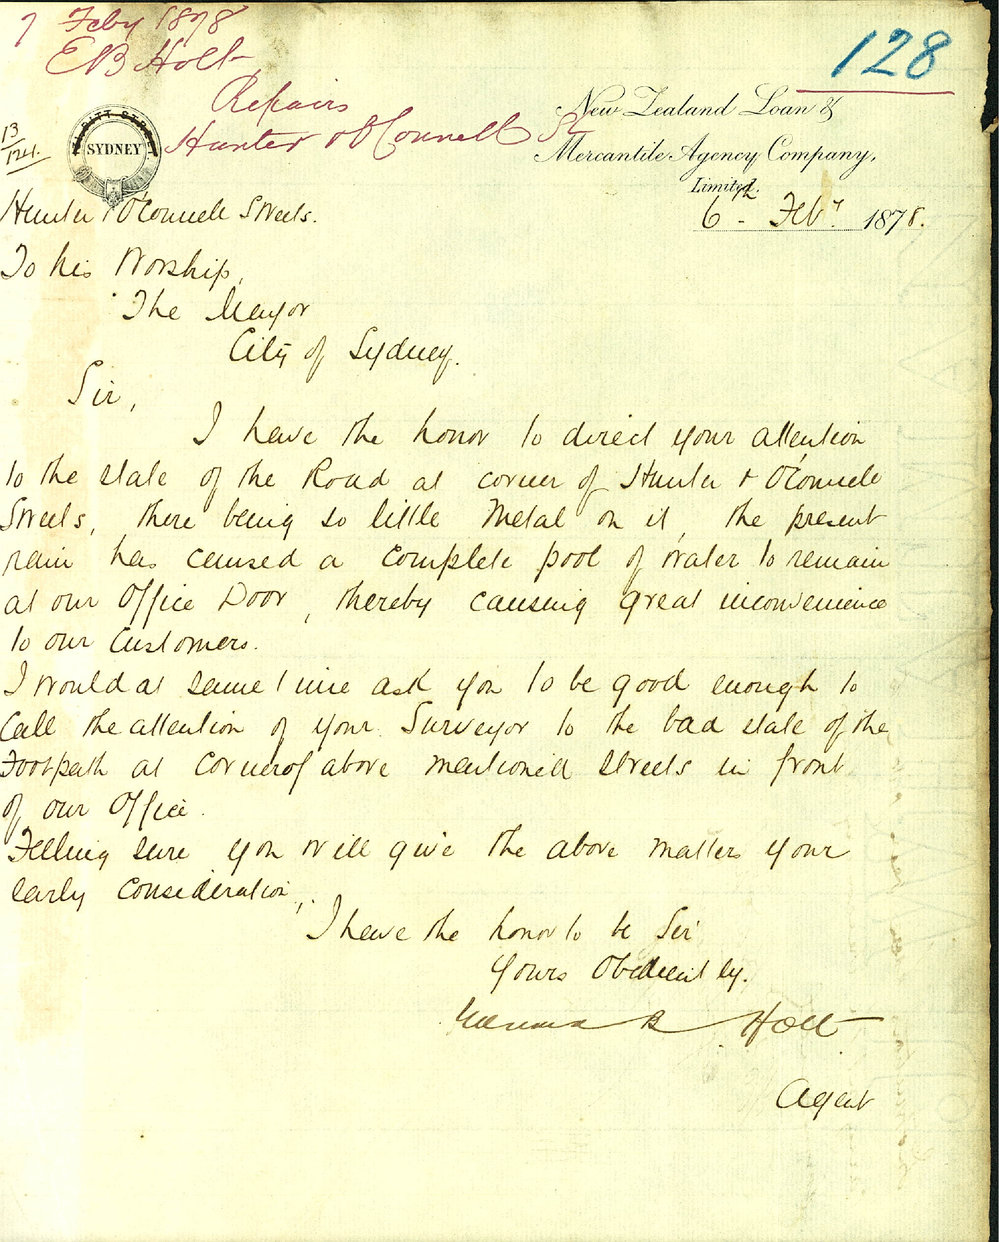 7 Feby 1878
E B Holt
Repairs
Hunter & O'Connell St
128
13/124.
PITT STREET
SYDNEY
New Zealand Loan &
Mercantile Agency Company,
Limited.
6th Feby. 1878.
Hunter & O'Connell Streets.
To his Worship,
The Mayor
City of Sydney.
Sir,
I have the honor to direct your attention
to the state of the Road at corner of Hunter & O'Connell
Streets, there being so little Metal on it, the present
rain has caused a complete pool of water to remain
at our Office Door, thereby causing great inconvenience
to our Customers.
I would at same time ask you to be good enough to
Call the attention of your Surveyor to the bad state of the
Footpath at corner of above mentioned streets in front
of our Office.
Feeling sure you will give the above matters your
early consideration,
I have the honor to be Sir
Yours Obediently.
B Holt
Agent